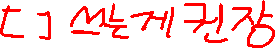 [ ] 쓰는게 권장